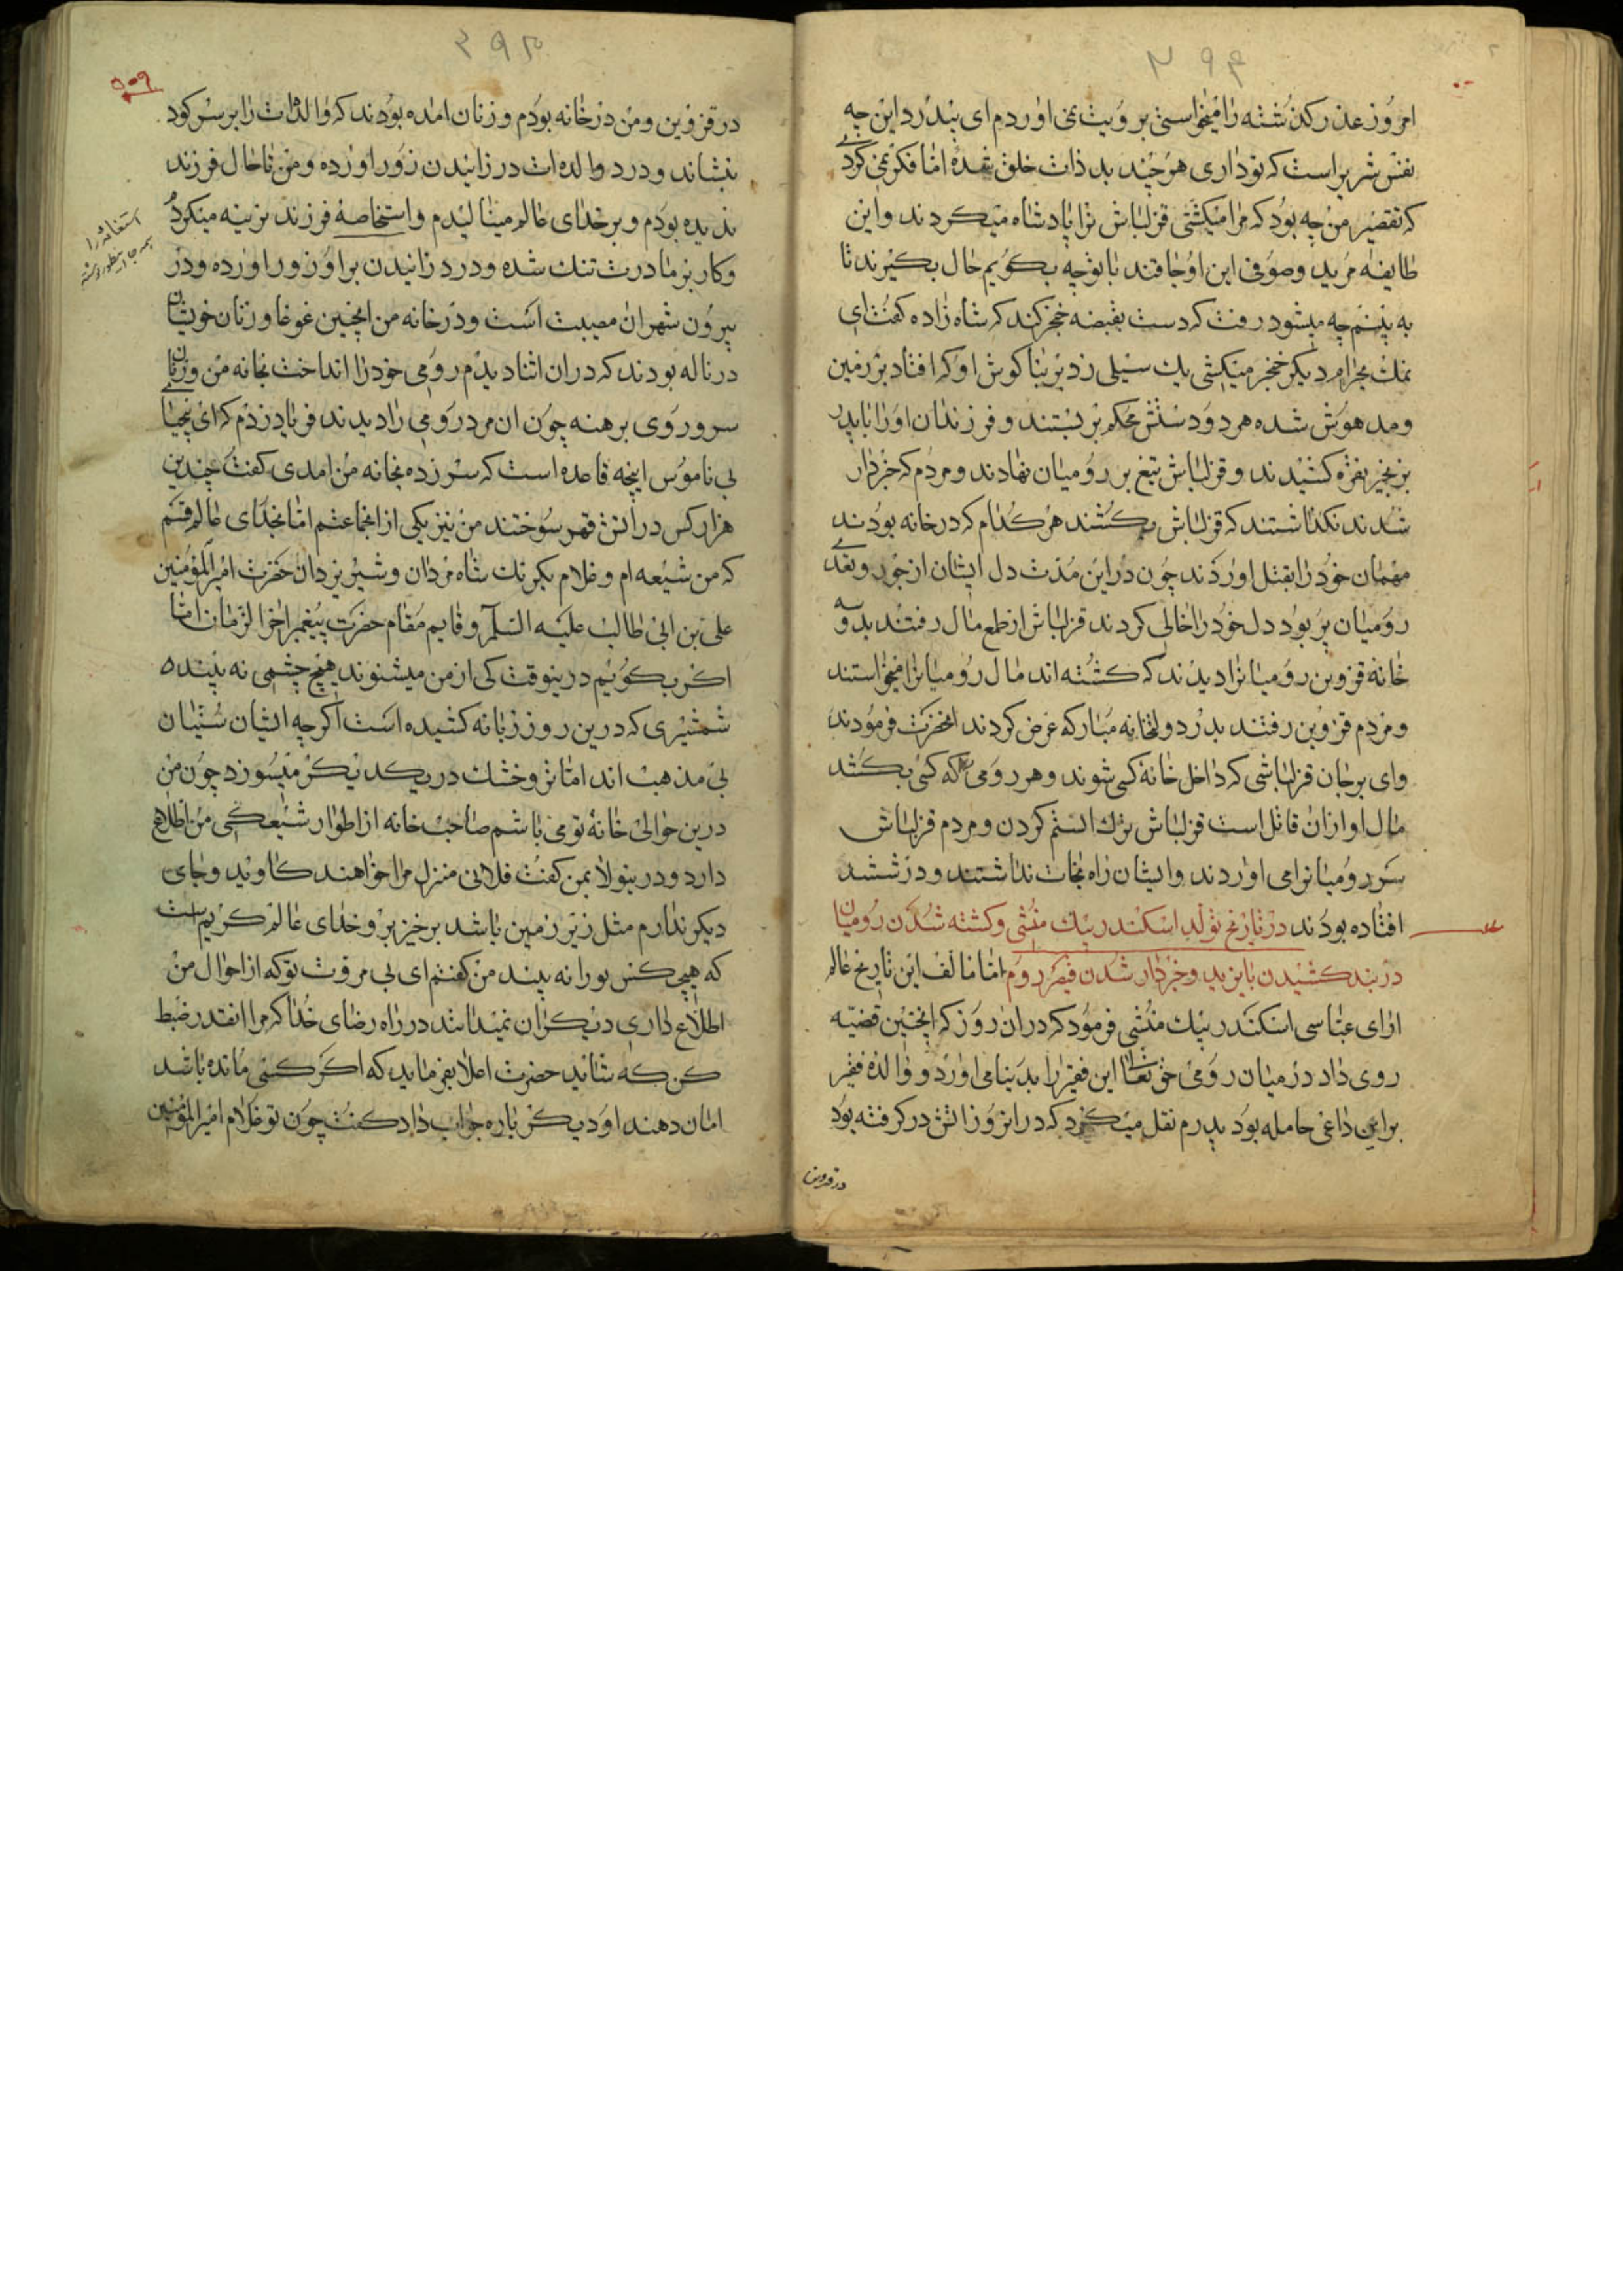 امروز عذر گذشته را میخواستی برویت نمی اوردم ای پدر این چه
نفس شریر است که تو داری هر چند بد ذات خلق شده اما فکر نمی کردی
که تقصیر من چه بود که مرا میکشتی قزلباش ترا پادشاه میکردند و این
طایفه مرید و صوفی این اوجاقند با تو چه بگویم حال بگیرند تا
به بینم چه میشود رفت که دست بقبضه خنجر کند که شاه زاده گفت ای
نمک بحرام دیگر خنجر میکشی یک سیلی زد بر بنا گوش او که افتاد بر زمین
و مدهوش شده هر دو دستش محکم بر بستند و فرزندان او را با پدر
بزنجیر نقره کشیدند و قزلباش تیغ بر رومیان نهادند و مردم که خبردار
شدند نگذاشتند که قزلباش بکشند هر کدام که در خانه بودند
مهمان خود را بقتل اوردند چون در این مدت دل ایشان از جور و تعدی
رومیان پر بود دل خود را خالی کردند قزلباش از طمع مال رفتند بدر
خانه قزوین رومیانرا دیدند که کشته اند مال رومیانرا میخواستند
و مردم قزوین رفتند بدر دولتخانه مبارکه عرض کردند انحضرت فرمودند
وای بر جان قزلباشی که داخل خانه کسی شوند و هر رومی که کسی بکشد
مال او ازان قاتل است قزلباش ترک الستم کردن و مردم قزلباش
سر رومیانرا می اوردند و ایشان راه نجات نداشتند و در ششدر
افتاده بودند در تاریخ تولد اسکندر بیک منشی و کشته شدن رومیان
در بند کشیدن بایزید و خبردار شدن قیصر روم اما مالف این تاریخ عالم
ارای عباسی اسکندر بیک منشی فرمود که دران روز که اینچنین قضیه
روی داد در میان رومی حق تعالا این فقیر را بدنیا می اورد و والده فقیر
براین داعی حامله بود پدرم نقل میکرد که در انروز اتش در گرفته بود
در قزوین
در قزوین و من در خانه بودم و زنان امده بودند که والده ات را بر سر کود
بنشاند و درد والده ات در زانیدن زور اورده و من تا حال فرزند
ندیده بودم و بر خدای عالم مینالیدم و استخاصه فرزند نرینه میکردم
و کار بر مادرت تنک شده و درد زانیدن بر او زور اورده و در
بیرون شهر ان مصیبت است و در خانه من اینچنین غوغا و زنان خویشان
در ناله بودند که دران اثنا دیدم رومی خود را انداخت بخانه من و زنان
سر و روی برهنه چون ان مرد رومی را دیدند فریاد زدم که ای بیحیا
بی ناموس اینچه قاعده است که سر زده بخانه من امدی گفت چندین
هزار کس در اتش قهر سوختند من نیز یکی از انجماعتم اما بخدای عالم قسم
که من شیعه ام و غلام یکرنک شاه مردان و شیر یزدان حضرت امیر المؤمنین
علی بن ابی طالب علیه السلم و قایم مقام حضرت پیغمبر اخر الزمان اما
اگر بگویم درینوقت کی از من میشنوند هیچ چشمی نه بینده
شمشیری که درین روز زبانه کشیده است اگر چه ایشان سنیان
بی مذهب اند اما تر و خشک در یکدیگر میسوزد چون من
درین حوالی خانه تو می باشم صاحب خانه از اطوار شیعگی من اطلاع
دارد و درینولا بمن گفت فلانی منزل مرا خواهند کاوید و جای
دیگر ندارم مثل زیر زمین باشد برخیز برو خدای عالم کریم است
که هیچ کس تو را نه بیند من گفتم ای بی مروت تو که از احوال من
اطلاع داری دیگران نمیدانند در راه رضای خدا که مرا انقدر ضبط
کن که شاید حضرت اعلا بفرماید که اگر کسی مانده باشد
امان دهند او دیگر باره جواب داد گفت چون تو غلام امیر المؤمنین